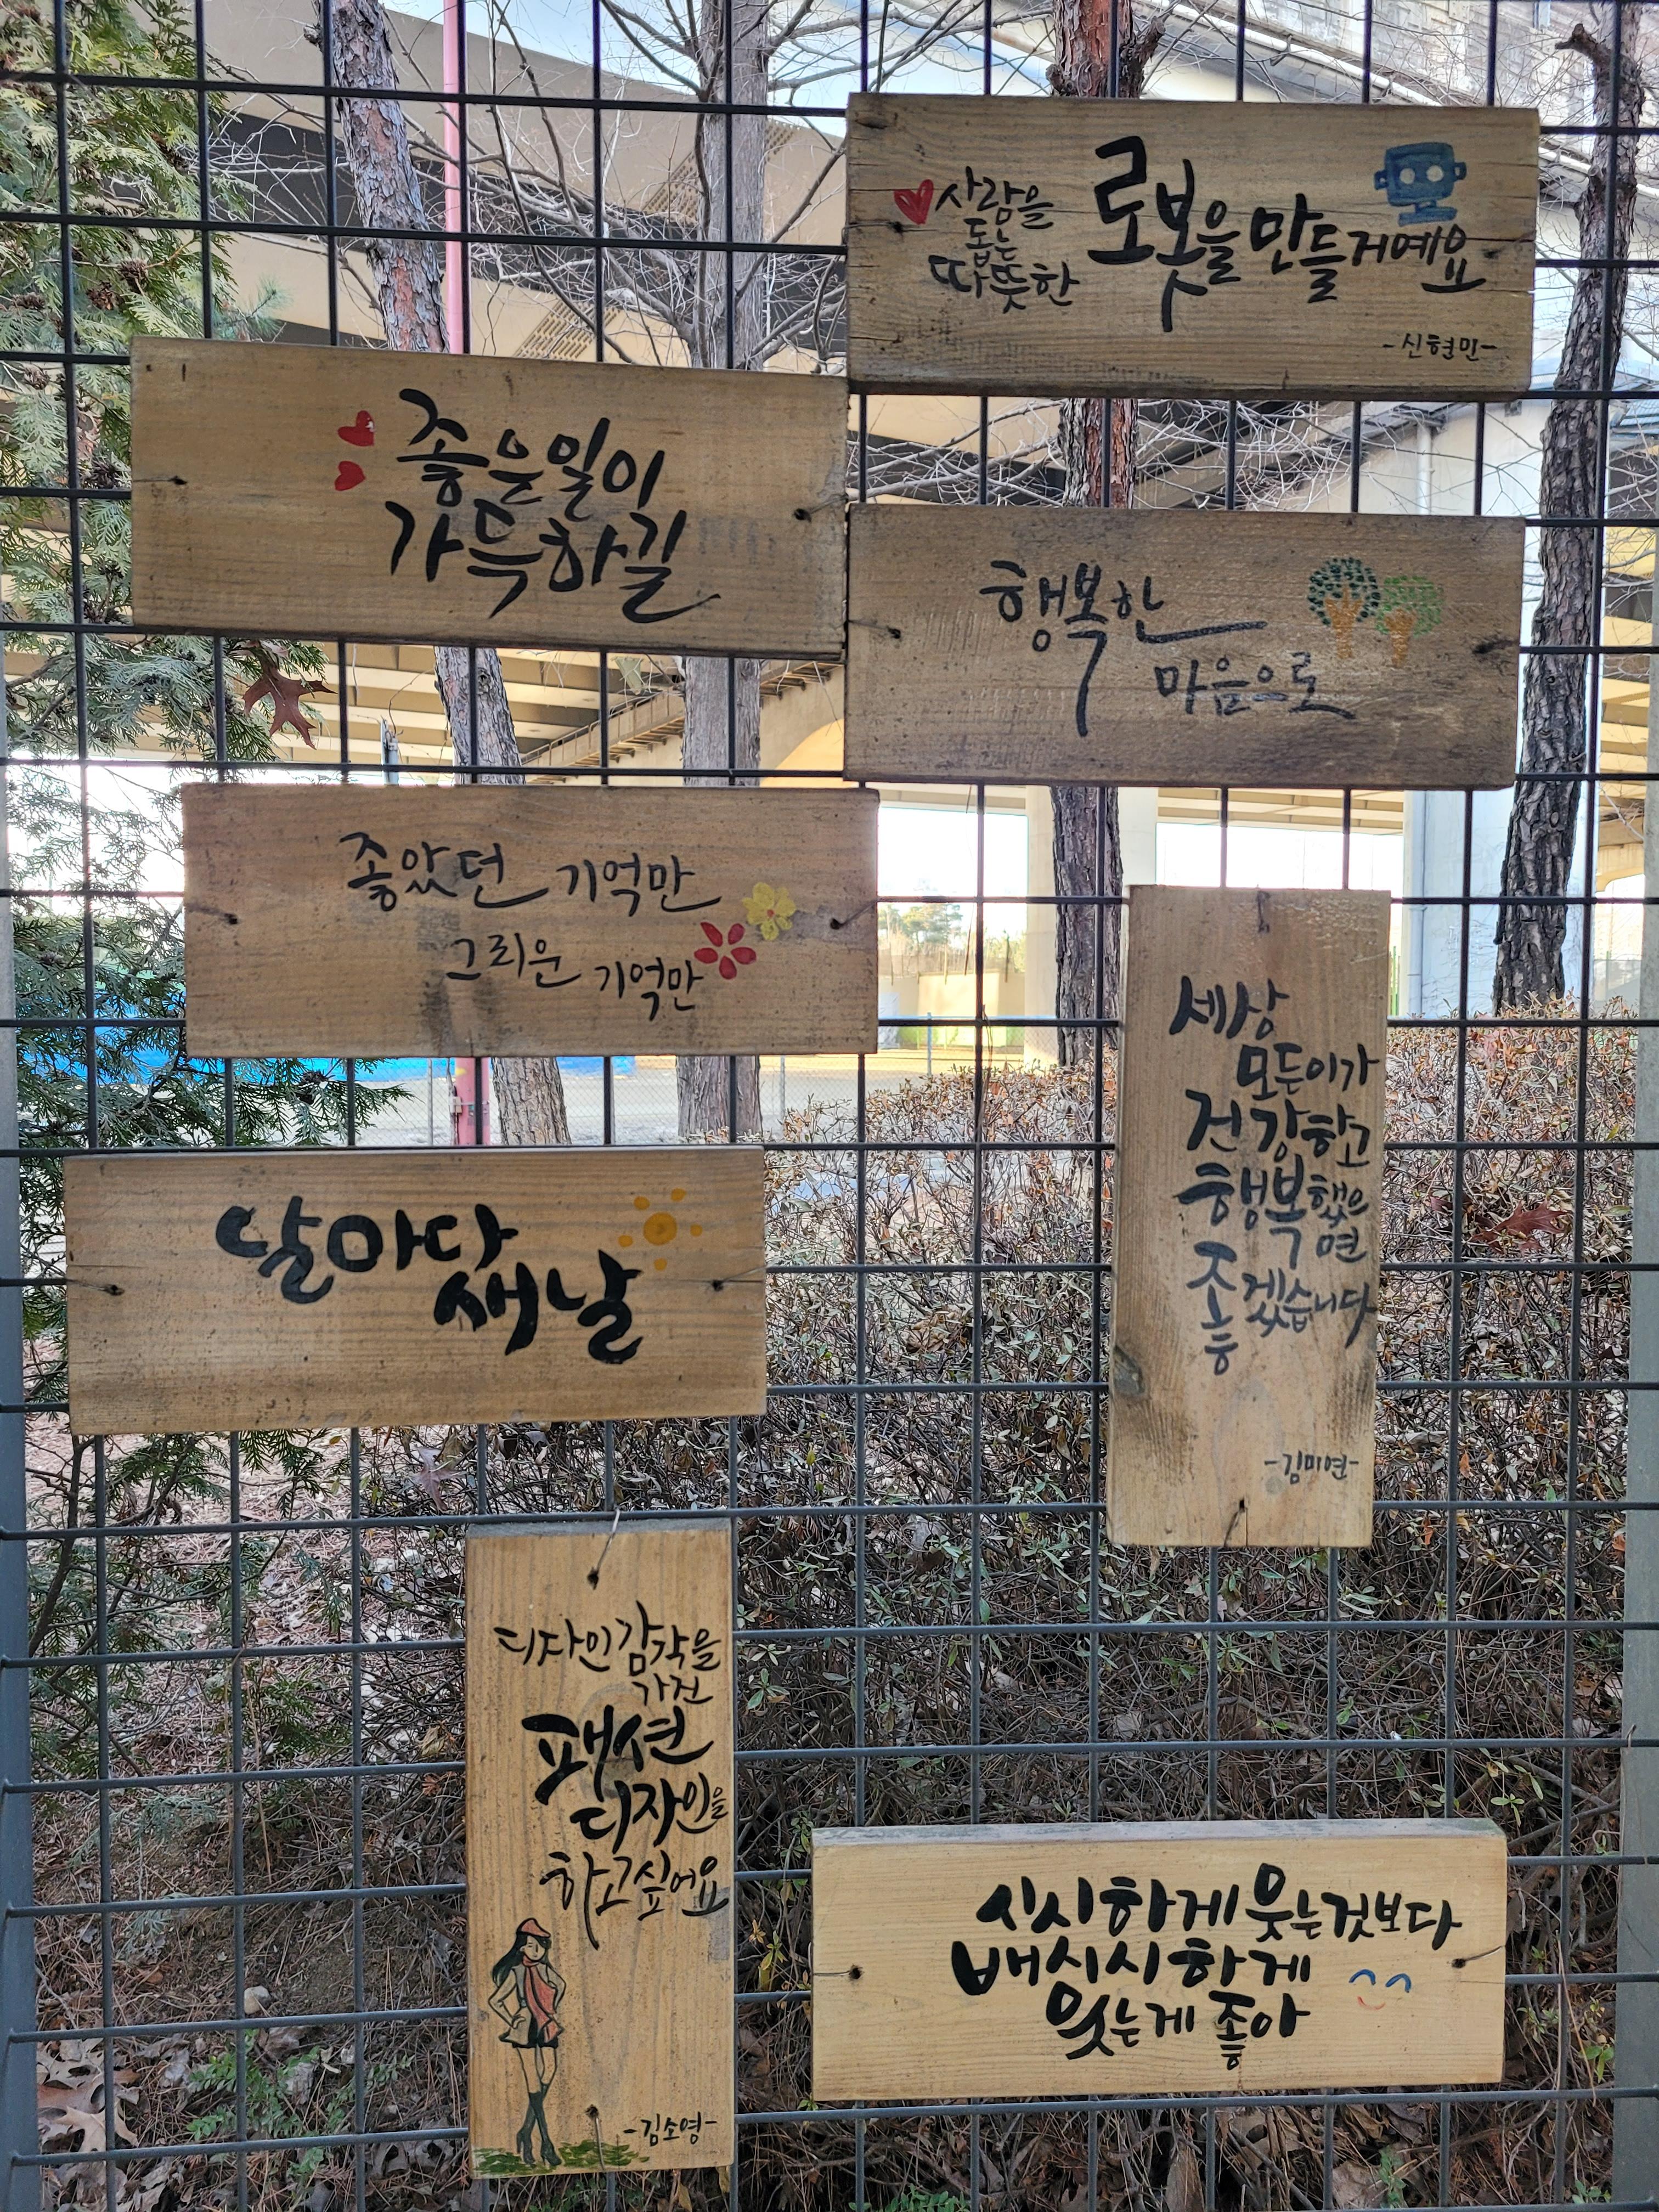 사람을
돕는
따뜻한
로봇을 만들거예요
-신현민-
좋은일이
가득하길
행복한
마음으로
좋았던 기억만
그리운 기억만
세상
모든이가
건강하고
행복했으
면
좋겠습니다
-김미연-
날마다
새날
디자인감각을
가진
패션
디자인을
하고싶어요
-김소영-
시시하게 웃는것보다
배시시하게
웃는게 좋아